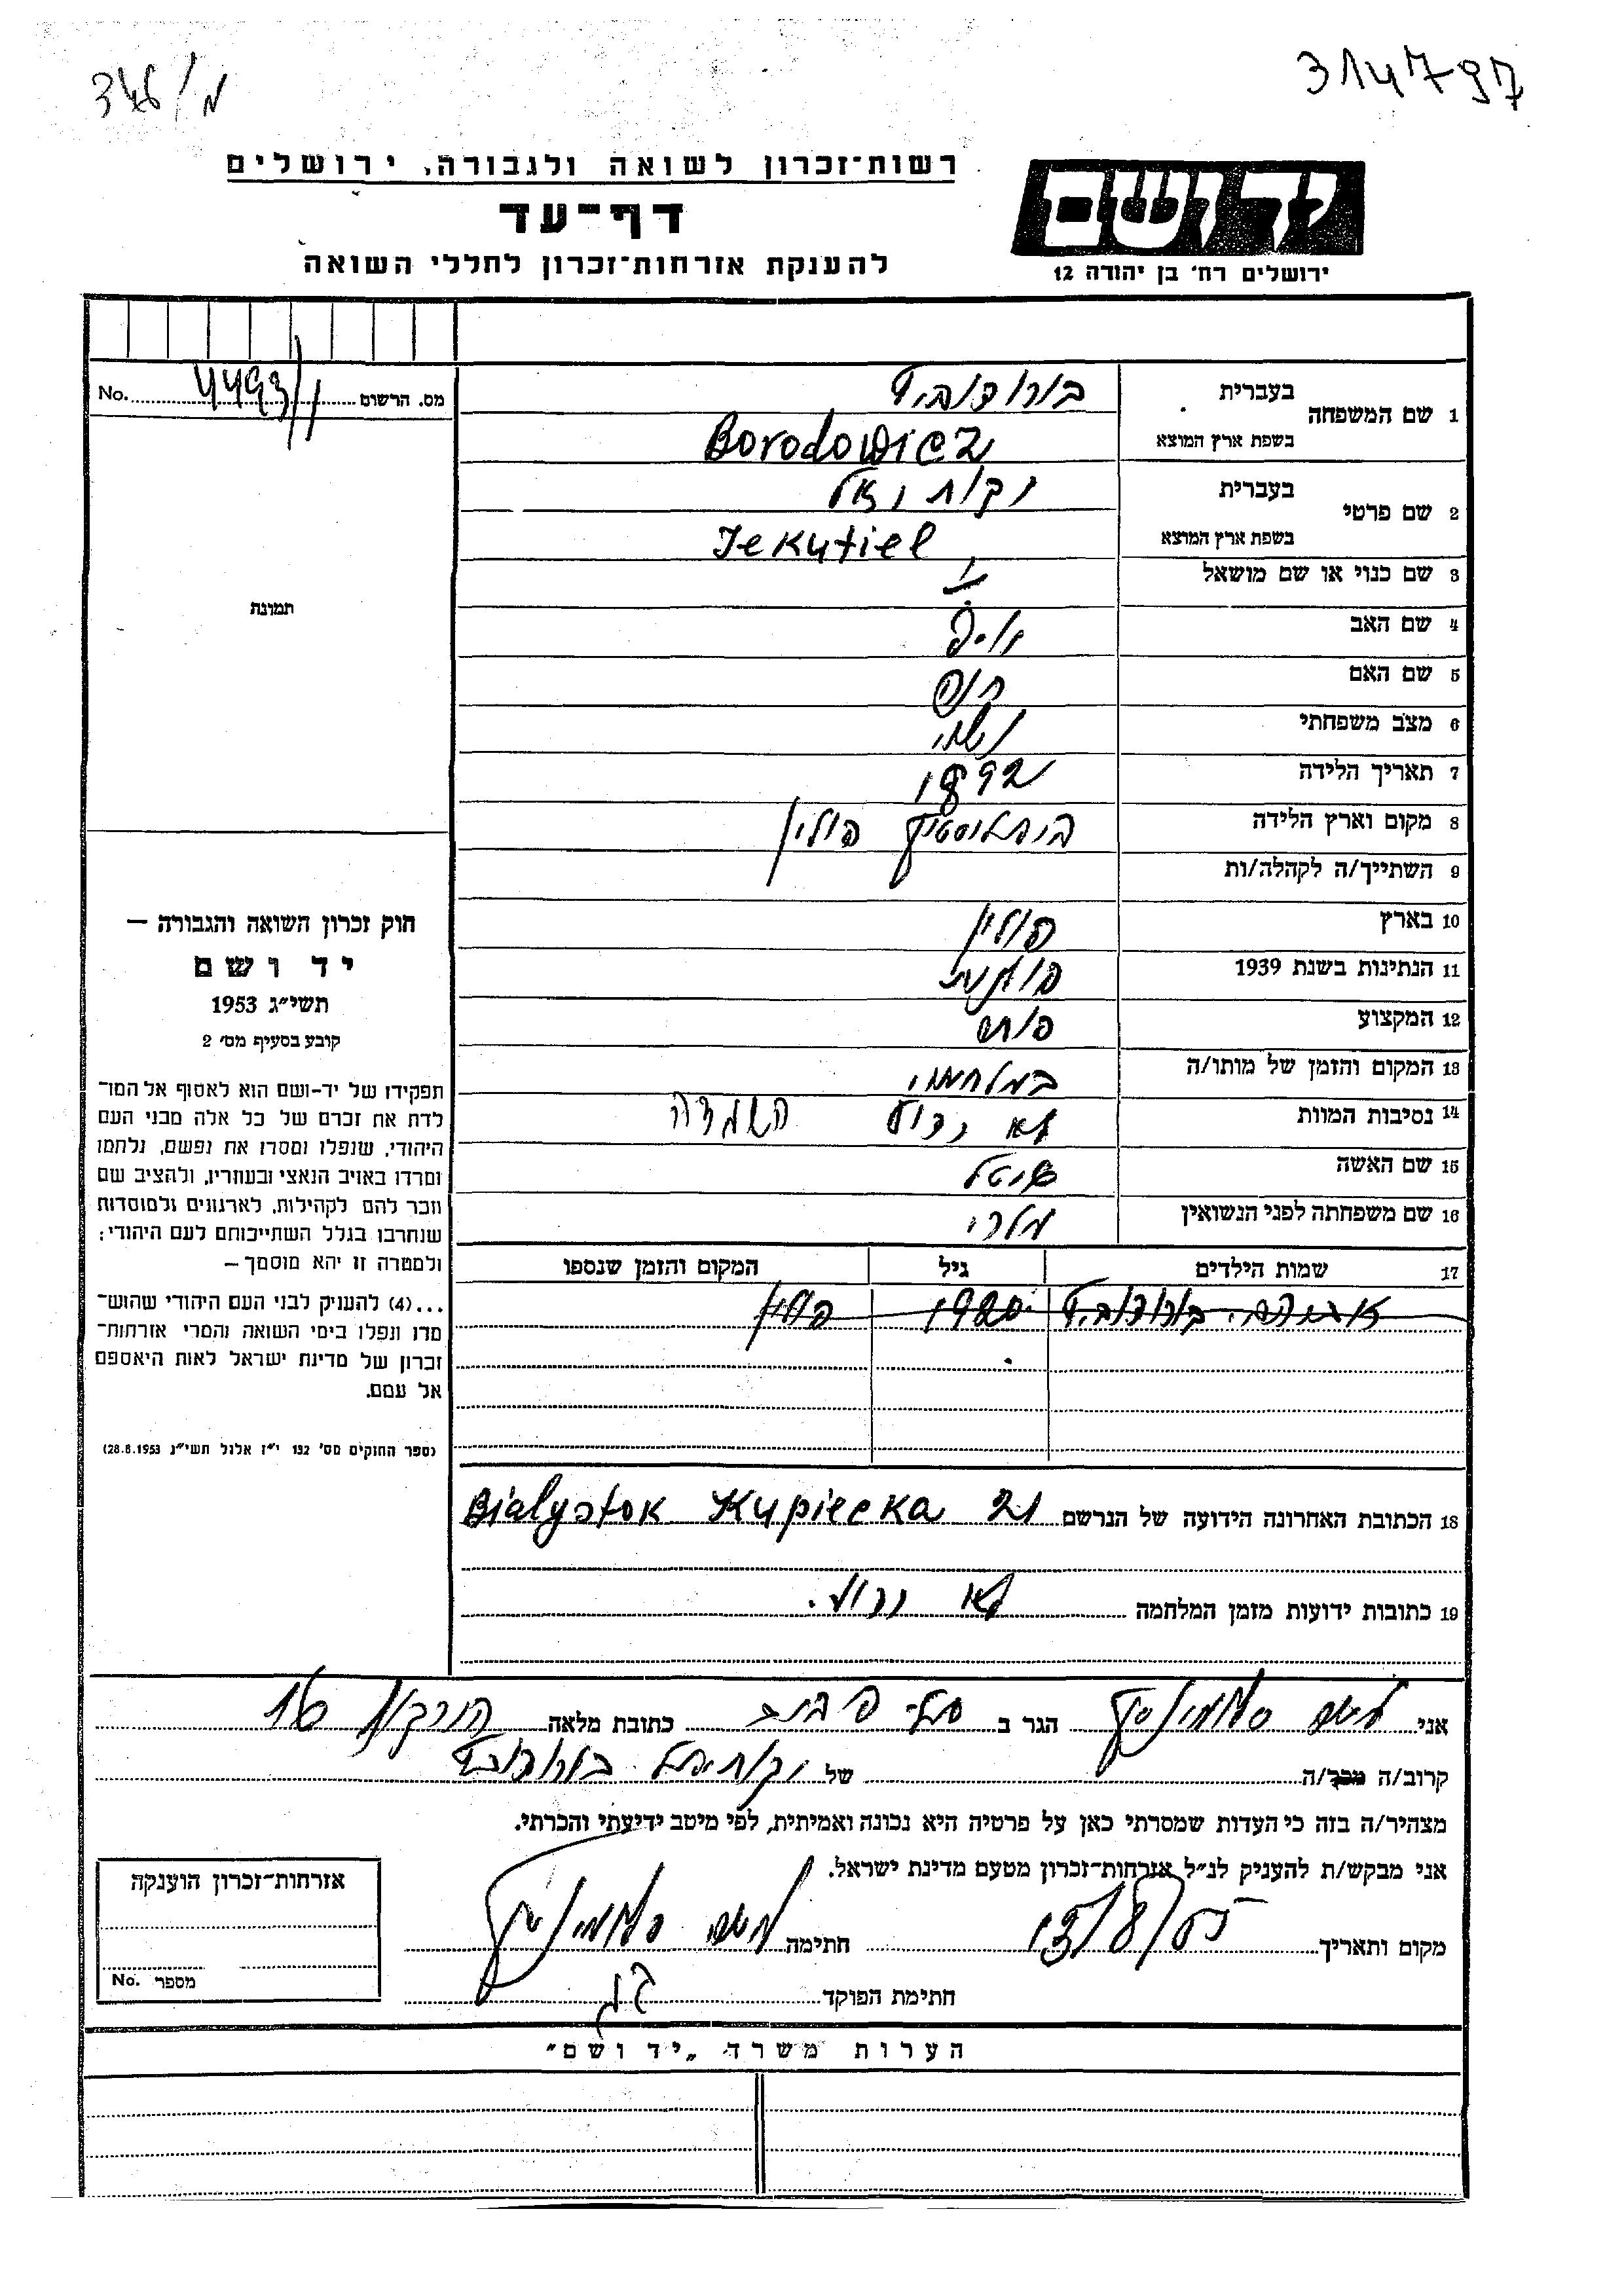 314797
רשות־זכרון לשואה ולגבורה, ירושלים
דף־עד
להענקת אזרחות־זכרון לחללי השואה
יד ושם
ירושלים רח' בן יהודה 12
מס. הרשום 4493/1 No.
תמונה
1 שם המשפחה
בעברית בורודוביץ
בשפת ארץ המוצא Borodowicz
2 שם פרטי
בעברית יקותיאל
בשפת ארץ המוצא Jekutiel
3 שם כנוי או שם מושאל
4 שם האב
5 שם האם
6 מצב משפחתי נשוי
7 תאריך הלידה 1892
8 מקום וארץ הלידה ביאליסטוק פולין
9 השתייך/ה לקהלה/ות
10 בארץ פולין
11 הנתינות בשנת 1939 פולנית
12 המקצוע
13 המקום והזמן של מותו/ה במלחמה
14 נסיבות המוות לא ידוע השמדה
15 שם האשה
16 שם משפחתה לפני הנשואין
17 שמות הילדים גיל המקום והזמן שנספו
בורודוביץ 1920 פולין
18 הכתובת האחרונה הידועה של הנרשם Bialystok Kupiecka 21
19 כתובות ידועות מזמן המלחמה לא ידוע.
חוק זכרון השואה והגבורה –
יד ושם
תשי"ג 1953
קובע בסעיף מס' 2
תפקידו של יד-ושם הוא לאסוף אל המו־
לדת את זכרם של כל אלה מבני העם
היהודי, שנפלו ומסרו את נפשם, נלחמו
ומרדו באויב הנאצי ובעוזריו, ולהציב שם
וזכר להם לקהילות, לארגונים ולמוסדות
שנחרבו בגלל השתייכותם לעם היהודי;
ולמטרה זו יהא מוסמך –
...(4) להעניק לבני העם היהודי שהוש־
מדו ונפלו בימי השואה והמרי אזרחות־
זכרון של מדינת ישראל לאות היאספם
אל עמם.
(ספר החוקים מס' 132 י"ז אלול תשי"ג 28.8.1953)
אני הגר ב כתובת מלאה 16
קרוב/ה מכר/ה של יקותיאל בורודוביץ
מצהיר/ה בזה כי העדות שמסרתי כאן על פרטיה היא נכונה ואמיתית, לפי מיטב ידיעתי והכרתי.
אני מבקש/ת להעניק לנ"ל אזרחות־זכרון מטעם מדינת ישראל.
מקום ותאריך 13/8/55 חתימה
חתימת הפוקד
אזרחות־זכרון הוענקה
מספר No.
הערות משרד „יד ושם"